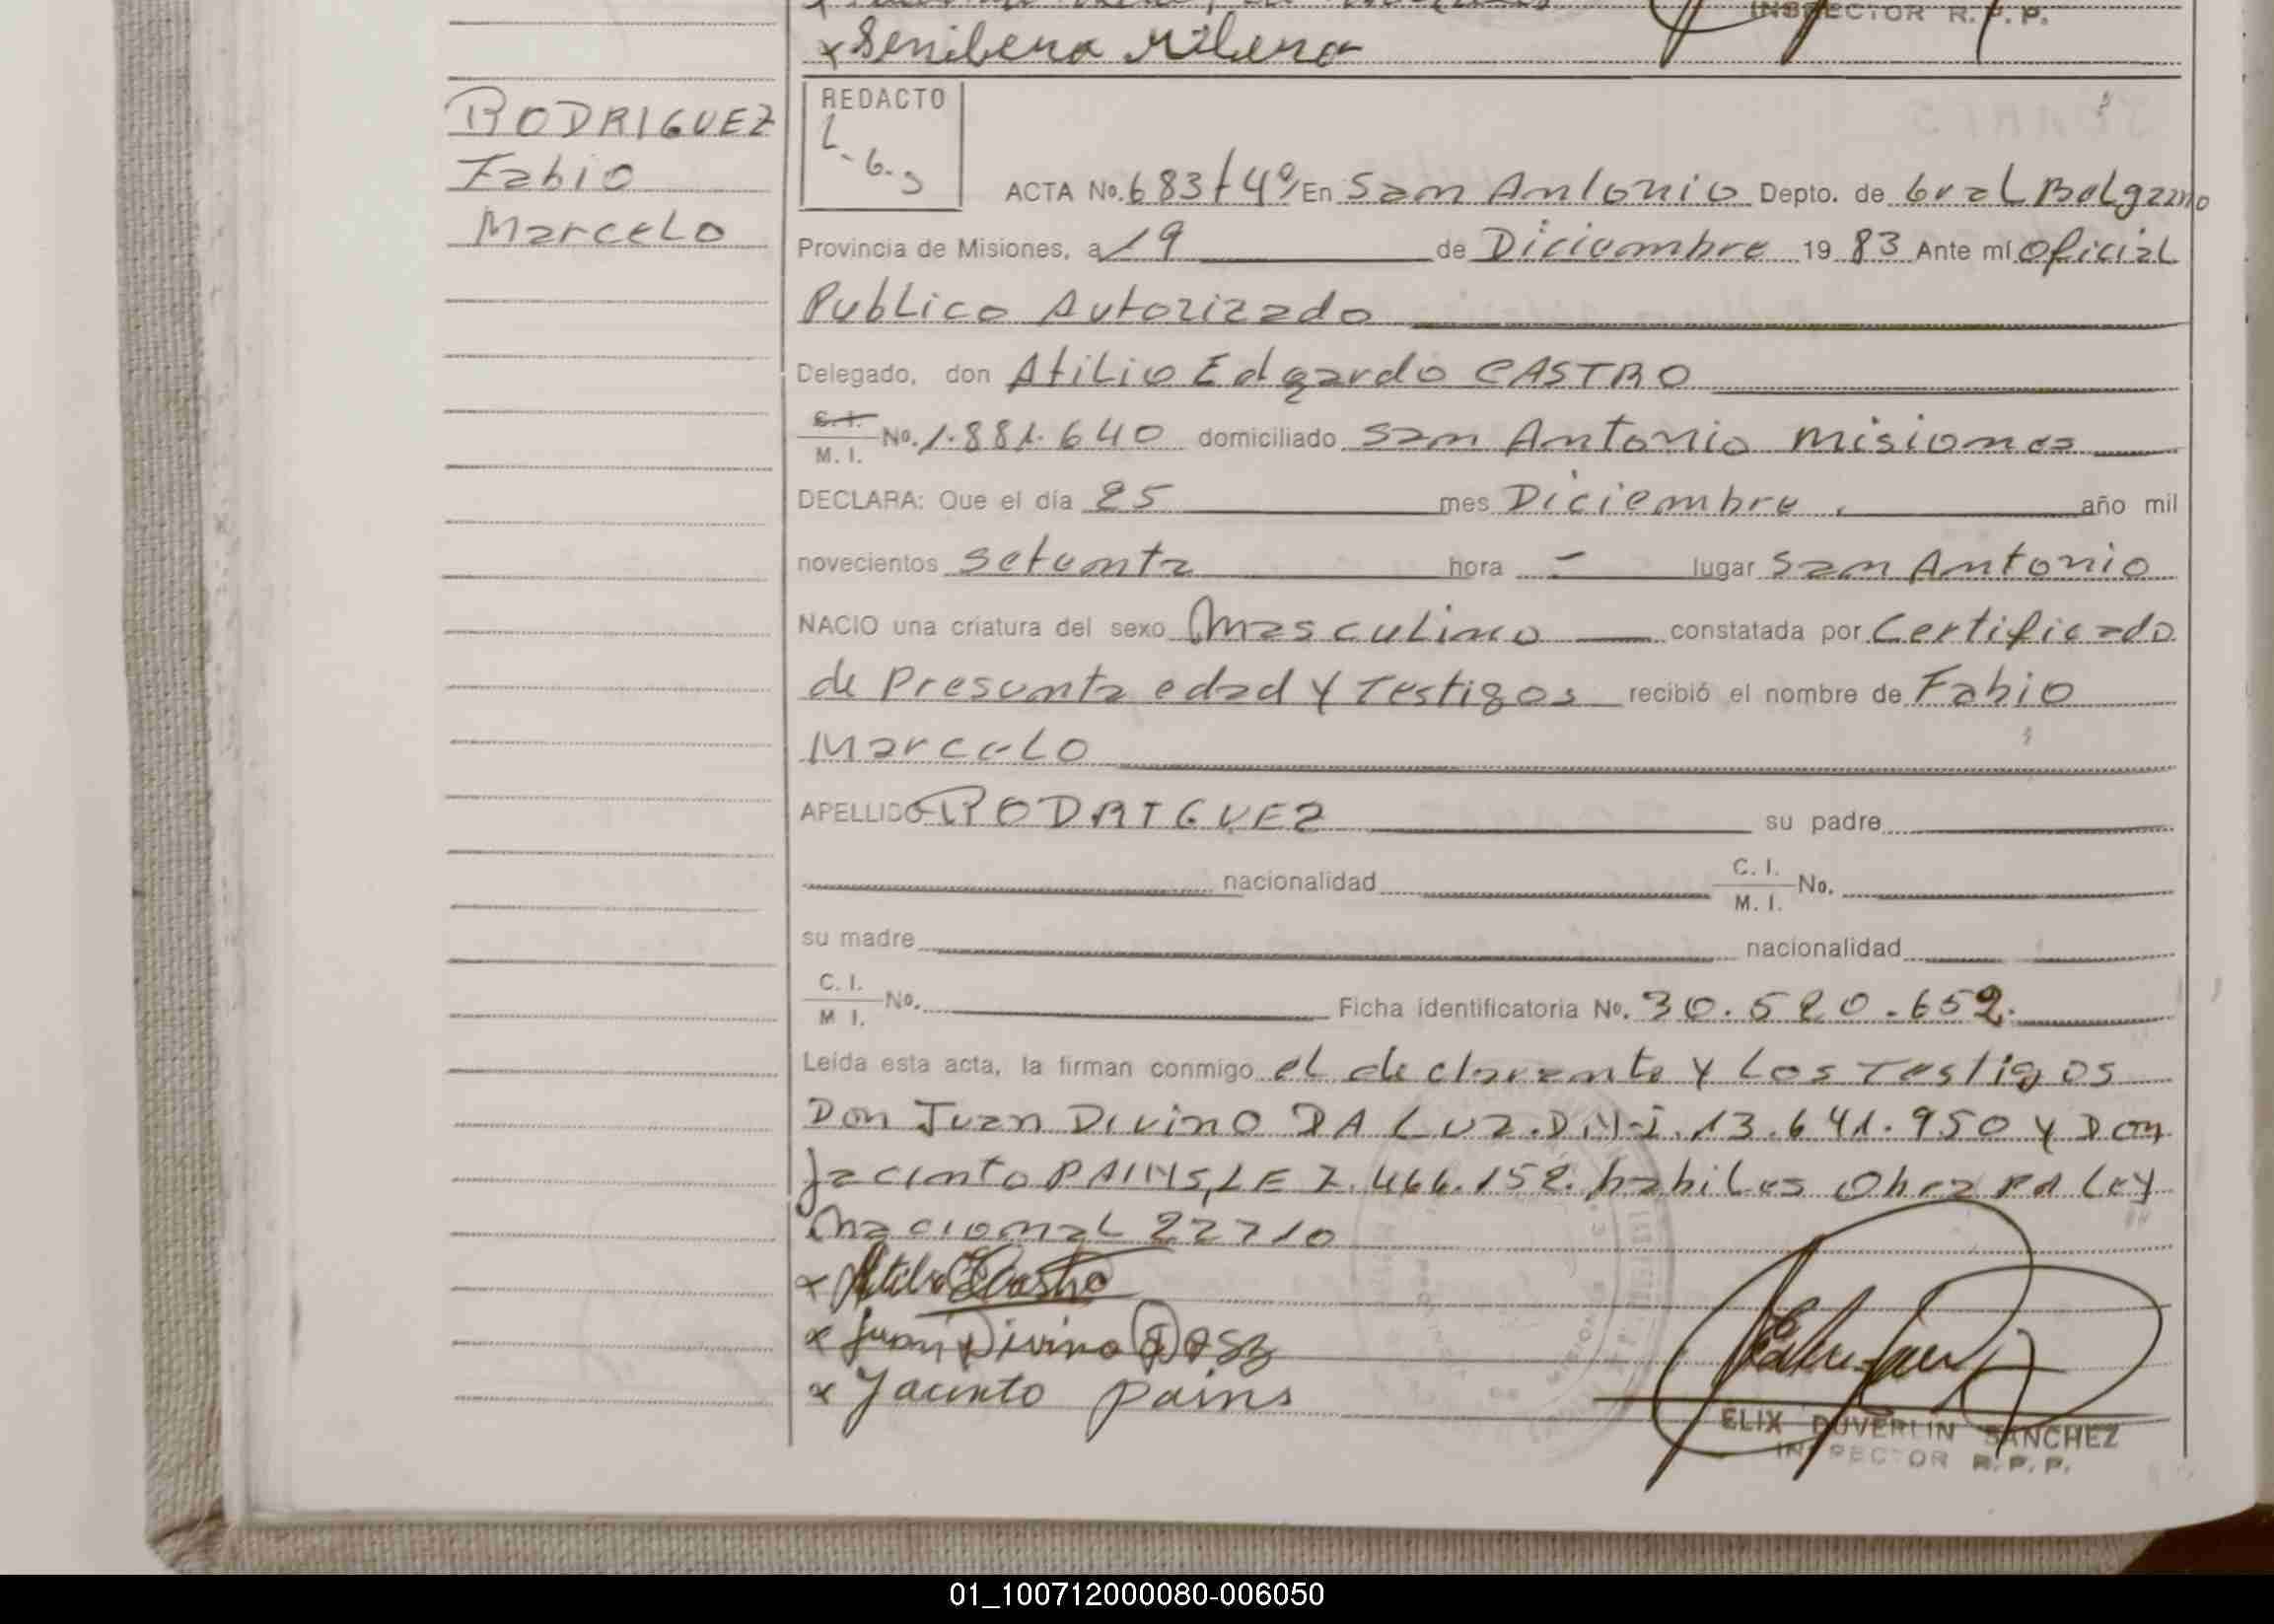 x Senibena Milena
INSPECTOR R. P. P.
RODRIGUEZ
Fabio
Marcelo
REDACTO
ACTA No. 683 t 4º En San Antonio Depto. de Gral Belgrano
Provincia de Misiones, a 19 de Diciembre 1983 Ante mí Oficial
Publico Autorizado
Delegado, don Atilio Edgardo CASTRO
C. I.
M. I. No. 1.881.640 domiciliado San Antonio Misiones
DECLARA: Que el día 25 mes Diciembre año mil
novecientos setenta hora - lugar San Antonio
NACIO una criatura del sexo Masculino constatada por Certificado
de Presunta edad y Testigos recibió el nombre de Fabio
Marcelo
APELLIDO RODRIGUEZ su padre
nacionalidad C. I. M. I. No.
su madre nacionalidad
C. I. M. I. No. Ficha identificatoria No. 30.520.652.
Leída esta acta, la firman conmigo el declarante y Los Testigos
Don Juan Divino DA LUZ. D.N.I. 13.641.950 y Don
Jacinto PAINS, LE 7.466.152. habiles Ley
Nacional 22710
x Atilio E Castro
x Juan Divino
x Jacinto pains
ELIX DUVERLIN SANCHEZ
INSPECTOR R. P. P.
01_100712000080-006050